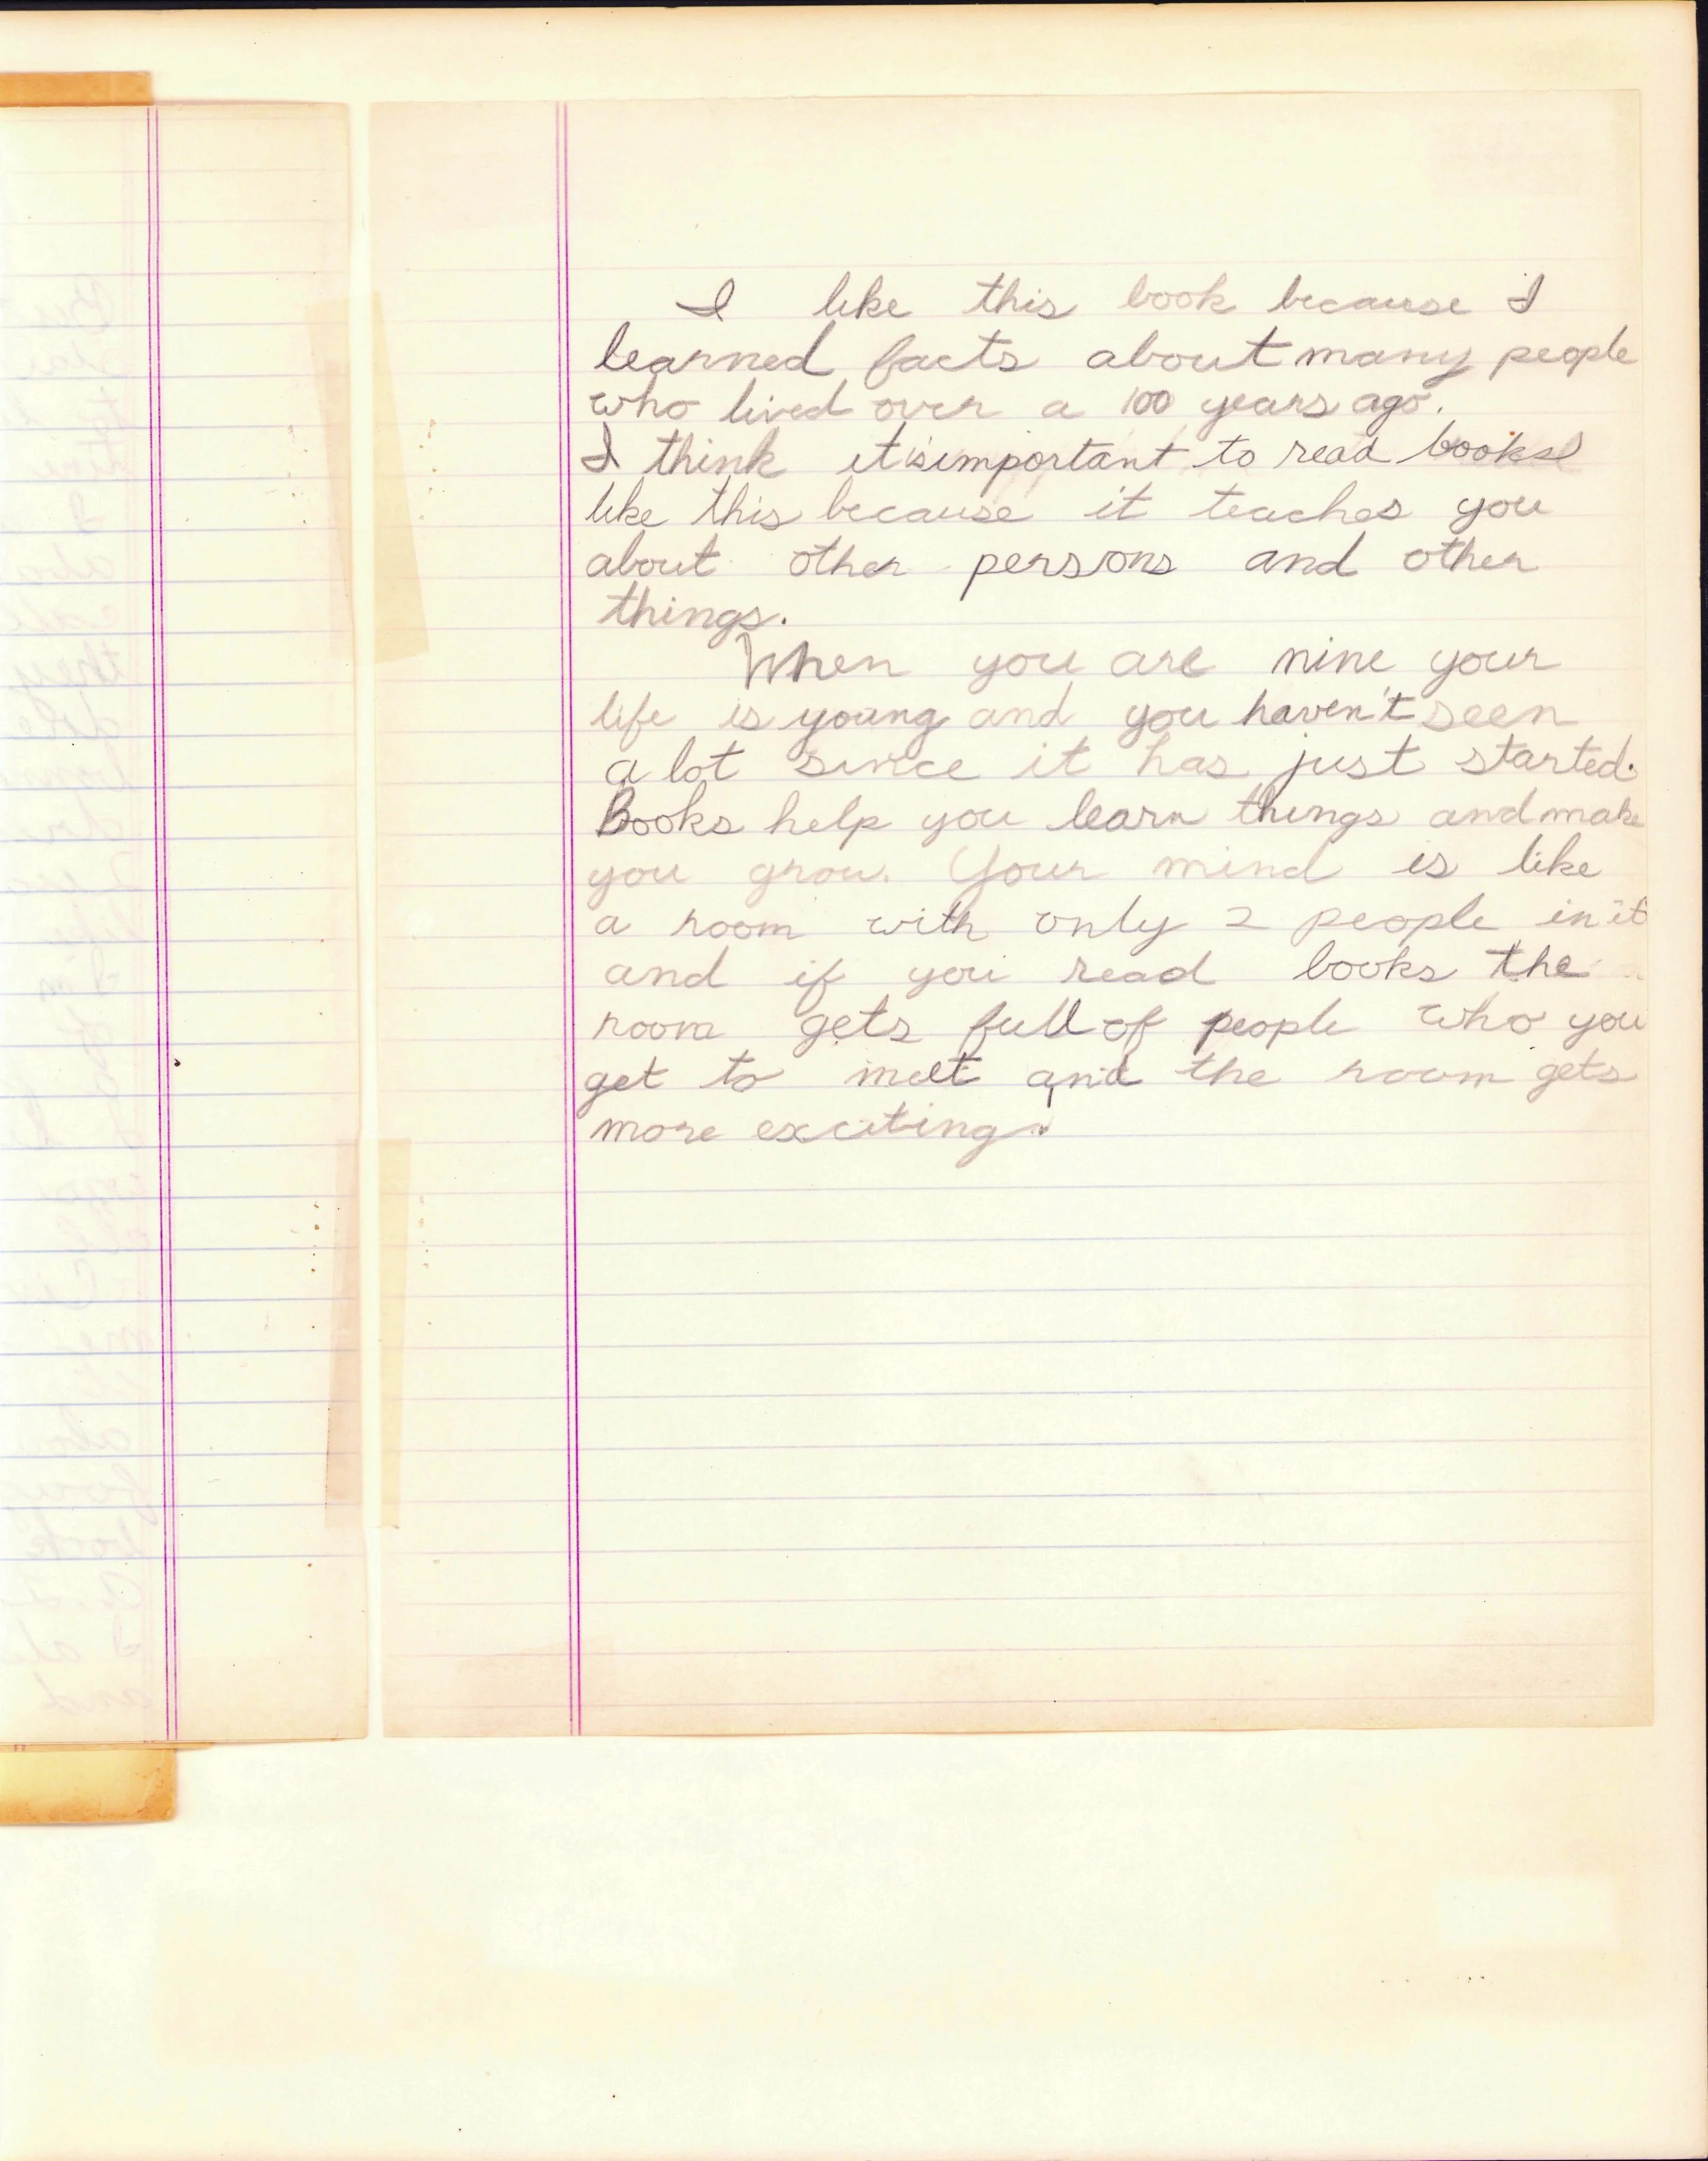 I like this book because I
learned facts about many people
who lived over a 100 years ago.
I think it is important to read books
like this because it teaches you
about other persons and other
things.
When you are nine your
life is young and you haven't seen
a lot since it has just started.
Books help you learn things and make
you grow. Your mind is like
a room with only 2 people in it
and if you read books the
room gets full of people who you
get to meet and the room gets
more exciting.